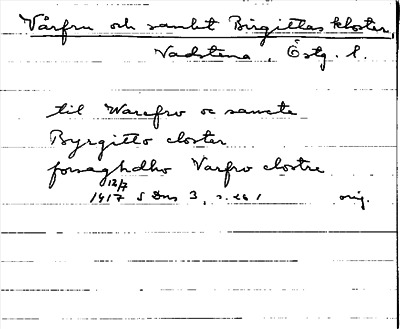 Vårfru och sankt Birgittas kloster,
Vadstena, Östg. l.
til Warefro oc sancte
Byrgitto closter
forsaghdho Varfro clostre
12/7
1417 S Dns 3, s. 261 orig.